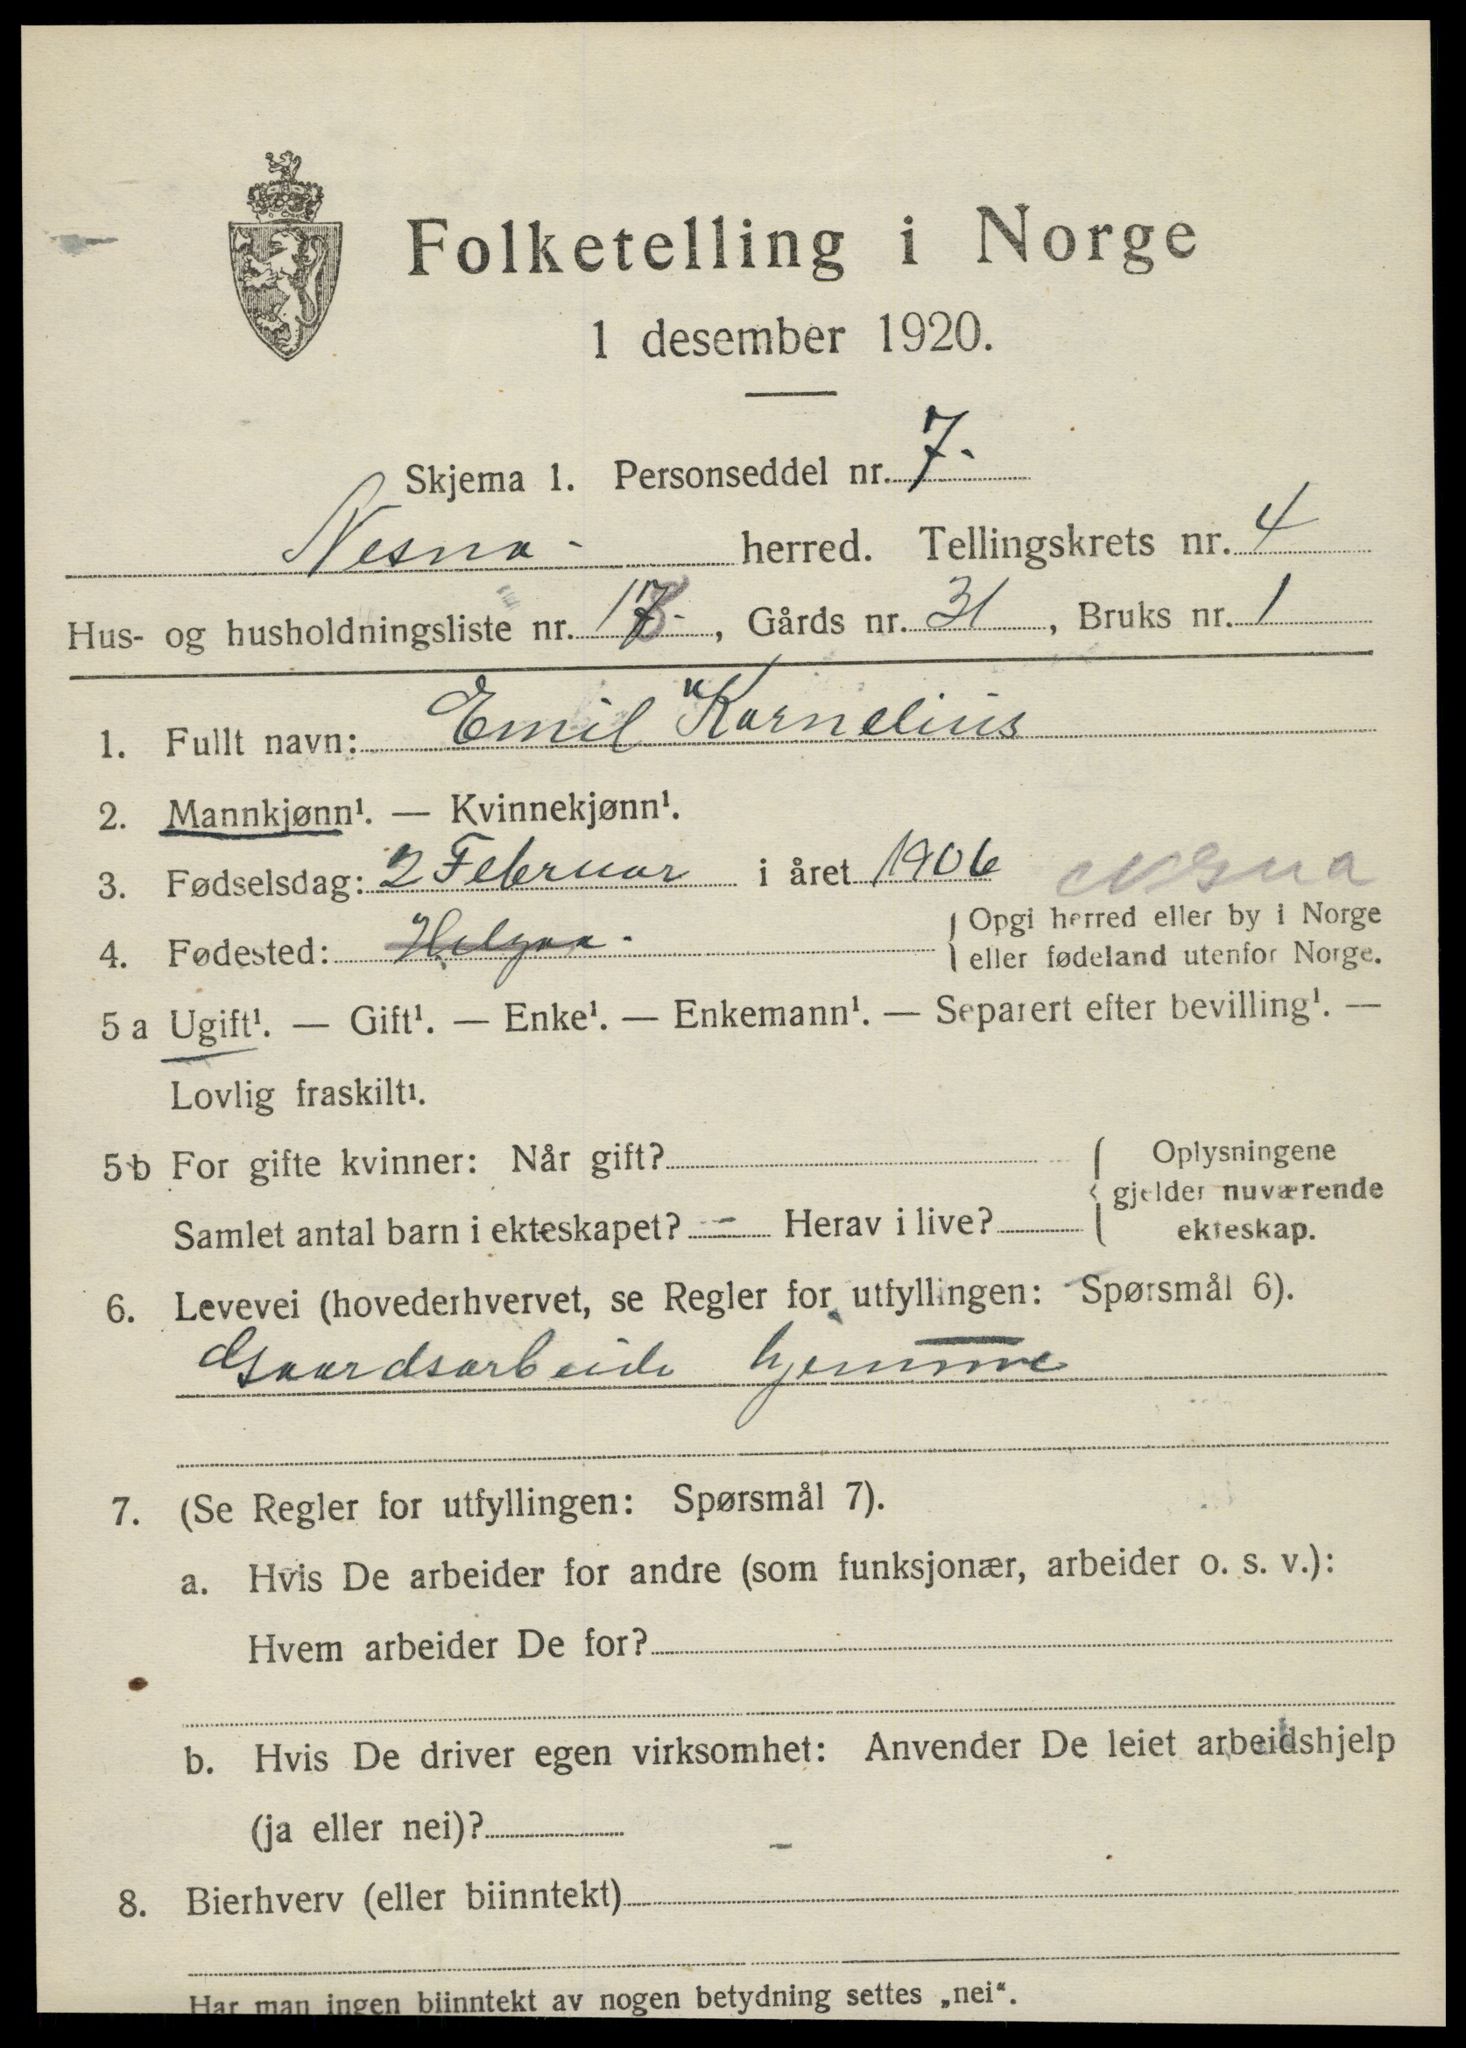 Folketelling i Norge
1 desember 1920.
Skjema 1. Personseddel nr. 7.
Nesna - herred. Tellingskrets nr. 4
Hus- og husholdningsliste nr. 1 -, Gårds nr. 31, Bruks nr. 1
1. Fullt navn: Emil Kornelius
2. Mannkjønn¹. — Kvinnekjønn¹.
3. Fødselsdag: 2 Februar i året 1906 Nesna
4. Fødested: Helgaa - Opgi herred eller by i Norge
eller fødeland utenfor Norge.
5 a Ugift¹. — Gift¹. — Enke¹. — Enkemann¹. — Separert efter bevilling¹. —
Lovlig fraskilt¹.
5 b For gifte kvinner: Når gift?
Samlet antal barn i ekteskapet? - Herav i live?
Oplysningene
gjelder nuværende
ekteskap.
6. Levevei (hovederhvervet, se Regler for utfyllingen: Spørsmål 6).
Gaardsarbeide hjemme
7. (Se Regler for utfyllingen: Spørsmål 7).
a. Hvis De arbeider for andre (som funksjonær, arbeider o. s. v.):
Hvem arbeider De for?
b. Hvis De driver egen virksomhet: Anvender De leiet arbeidshjelp
(ja eller nei)? -
8. Bierhverv (eller biinntekt)
Har man ingen biinntekt av nogen betydning settes „nei“.